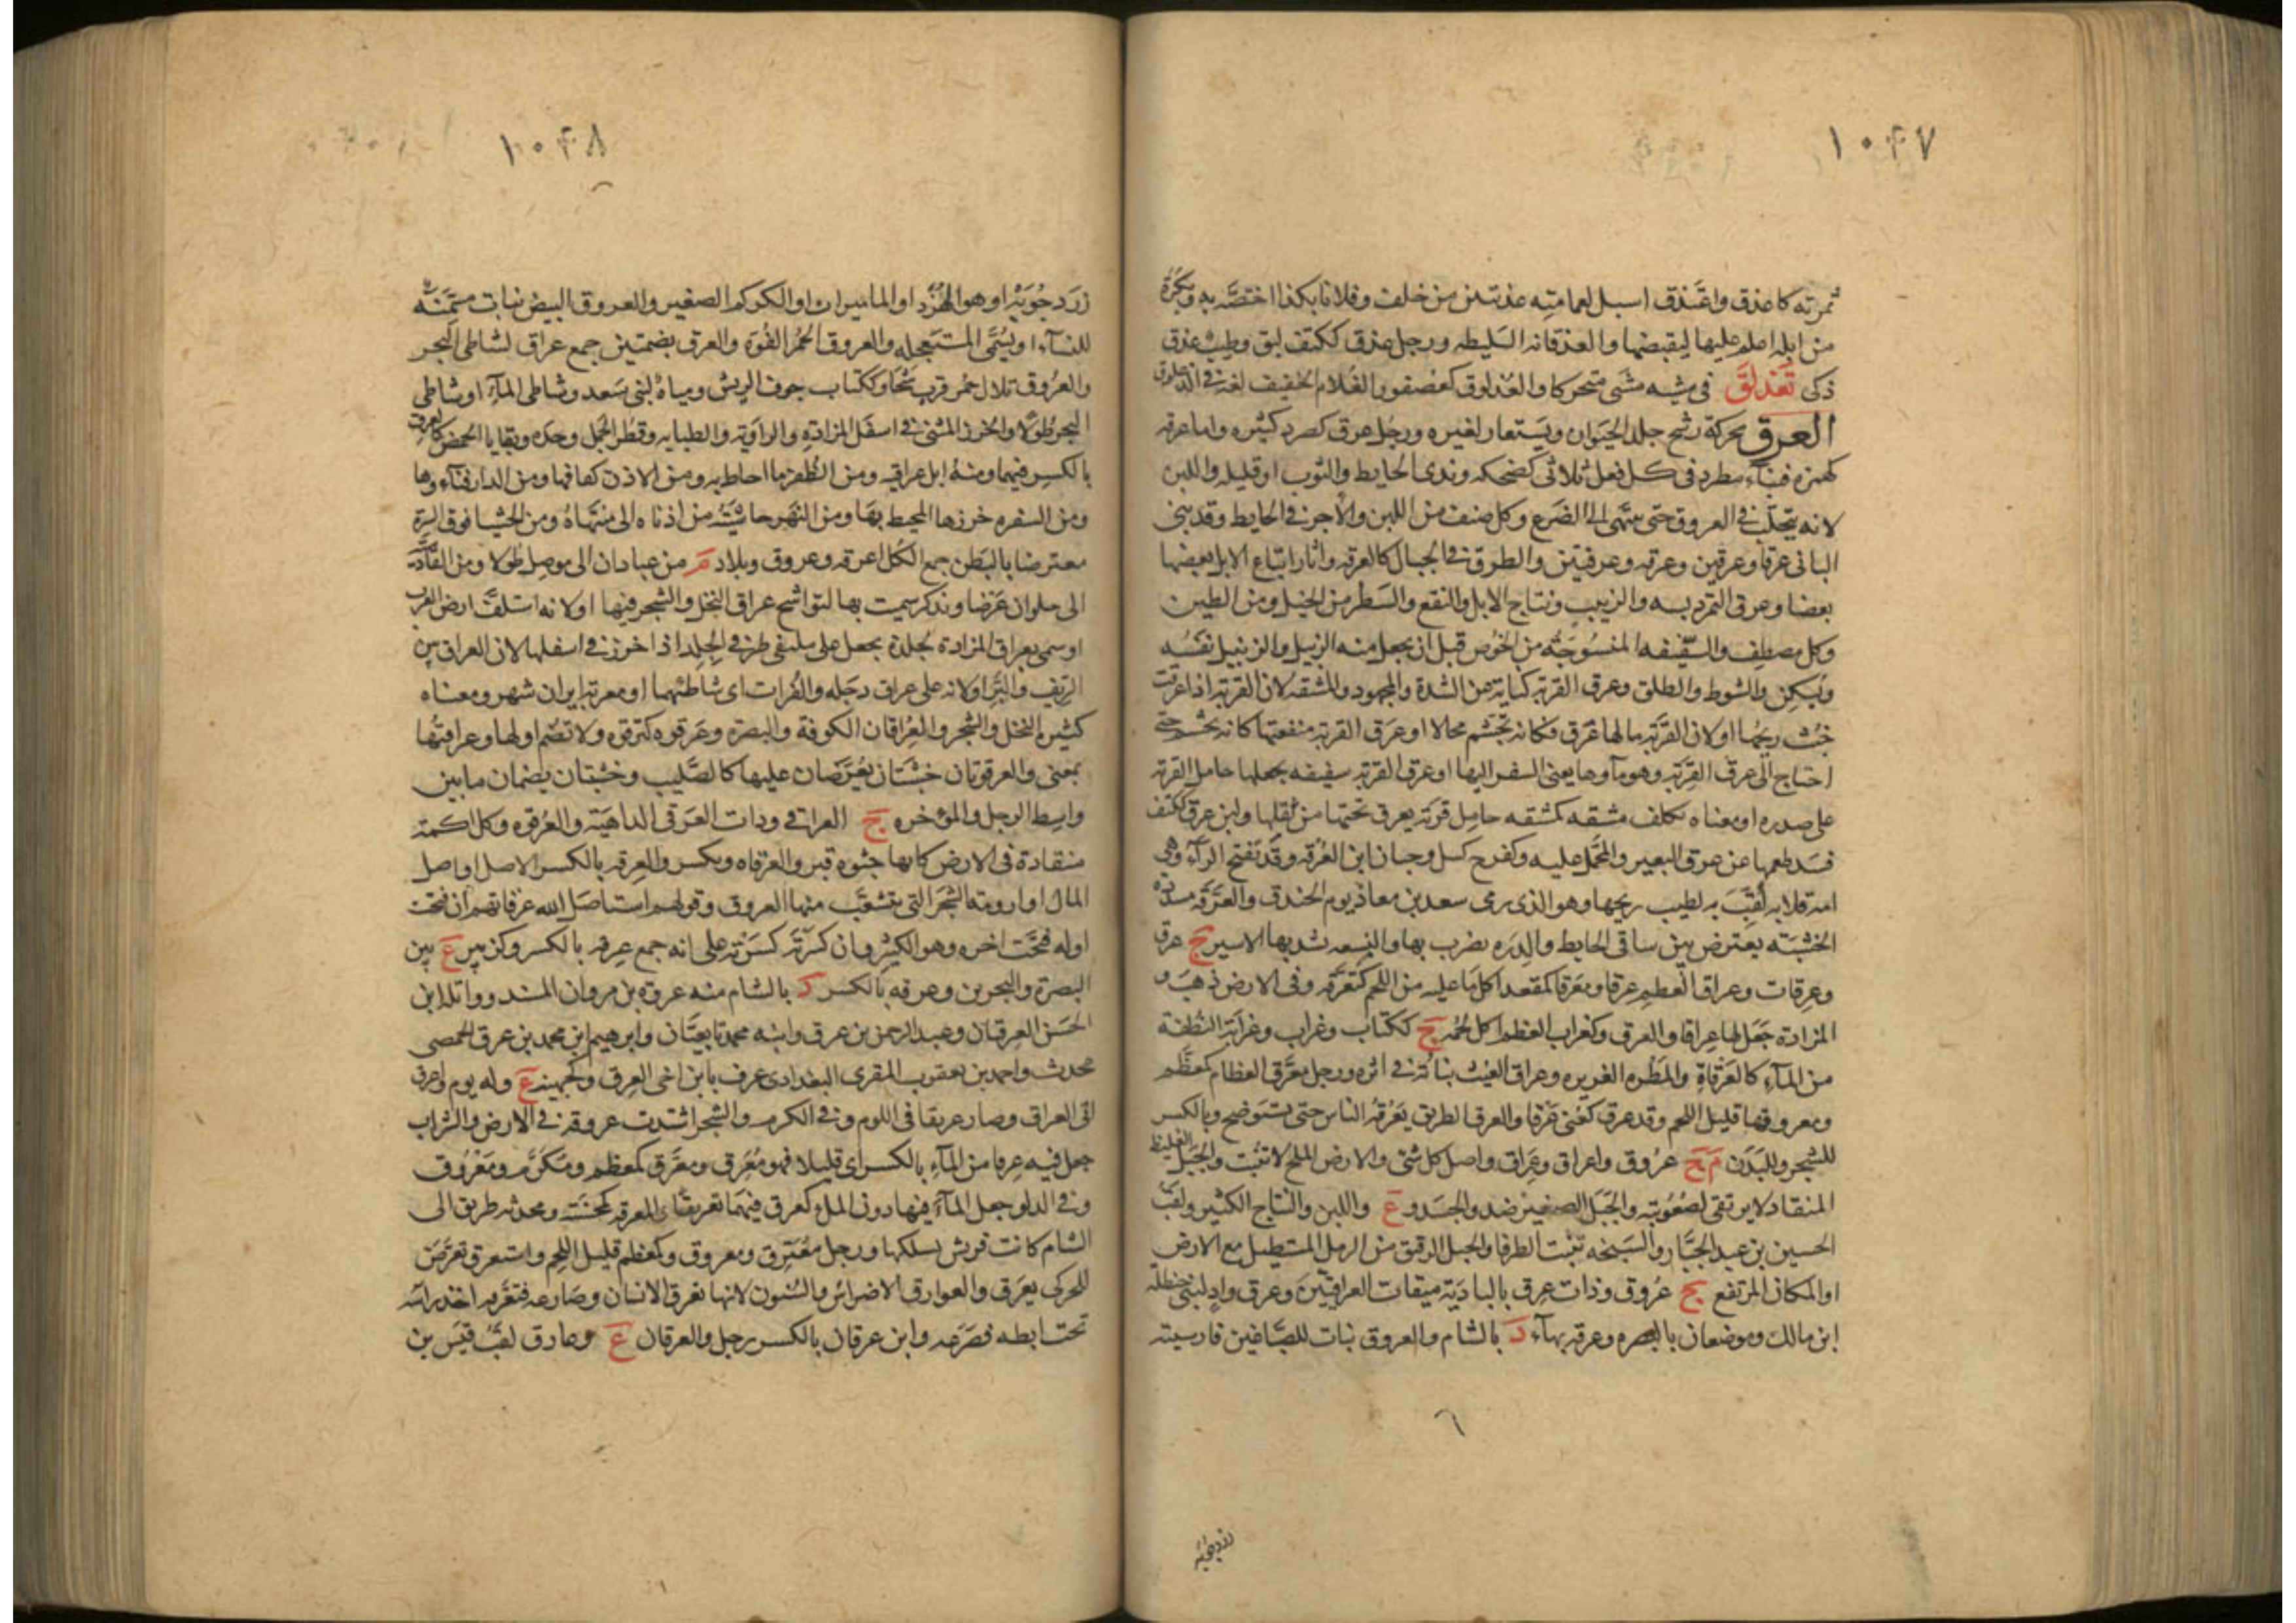 ١٠٤٧
ثمرته كاعذق واعتذق اسبل لعمامته عذبتين من خلف وفلانا بكذا اختصه به وبكرة
من ابله اعلم عليها ليقبضها والعذقانه السليطه ورجل عذق ككتف لبق وطيب عذق
ذكى تَعَذلَقَ فى مشيه مشى متحركا والعُذلوق كعصفور الغُلام الخفيف لغة فى الذعلوق
العرق محركة رشح جلد الحيَوان ويُستعار لغيره ورجُل عرق كصرد كثيره واما عرقه
كهمزه فبناء مطرد فى كل فعل ثلاثى كضحكه وندى الحايط والثوب او قليله واللبن
لانه يتحلّب فى العروق حتى ينتهى الى الضرع وكل صنف من اللبن والآجر فى الحايط وقد بنى
البانى عرقا وعرقين وعرقه وعرقتين والطرق فى الجبال كالعرقه واثار اتباع الابل بعضها
بعضا وعرق التمر دبسه والزبيب ونتاج الابل والنقع والسَطر من الخيل ومن الطير
وكل مصطف والسَّفيفه المنسُوجَة من الخُوص قبل ان يجعل منه الزبيل والزنبيل نفسُه
ويُسكن والشوط والطلق وعرق القربه كناية عن الشدة والمجهود والمشقه لان القربة اذا عرقت
خبُث ريحُها او لان القَربَة مالها عَرَق فكانه تجَشّم محالا او عَرَق القربة منفعتها كانه تجشم حتى
احتاج الى عرق القِرَبة وهو ماوها يعنى السفر اليها او عرق القربة سفيفه يجعلها حامل القربة
على صدره او معناه تكلف مشقه كمشقه حامِل قربَة يعرق تحتها من ثقلها ولبن عرق ككتف
فسَد طعمها عن عرق البعير والمحَّمل عليه وكفرح كسل وحبان ابن العُرقه وقد تفتح الراء وهى
امه قلابه لُقِّبَت به لطيب ريحها وهو الذى رمى سعد بن معاذ يوم الخندق والعَرَقَه
الخشبَته يعترض بين ساقى الحايط والدِرَه يضرب بها والنِسعه يشد بها الاسير ج عرق
وعِرقات وعراق العظم عرقا ومَعرَقا كمقعد اكل ما عليه من اللحم كتعرَّقه وفى الارض ذهب و
المزاده جَعَل لها عِراقا والعرق وكغراب العظم اكل لحمُه ج ككتاب وغراب وغرابَة النُطفَة
من المآء كالعَرقاة والمَطَره الغزيره وعراق الغيث نباته فى اثره ورجل معرَّق العظام كمعظَّم
ومعروقها قليل اللحم وقد عرق كعُنى عَرقا والعرق الطريق يَعرُقهُ الناس حتى يستَوضح وبالكسر
للشجر وللبَدَن م ج عروق واعراق وعِرَاق واصل كل شئ والارض الملح لا تنبُت والجَبَل الغليظ
المنقاد لا يرتقى لصُعُوبته والجَبَل الصغير ضد والجسَد و ع واللبن والنتاج الكثير ولقبُ
الحسين بن عبد الجَبَّار والسَبَخه تنبُت الطرفا والحبل الرقيق من الرمل المستطيل مع الارض
او المكان المرتفع ج عُروق وذات عِرق بالباديَة ميقات العراقيين وعرق وادٍ لبنى حنظلة
ابن مالك وموضعان بالبصره وعرقه بهآء د بالشام والعروق نبات للصبّاغين فارسيته
٦
زردجويه
١٠٤٨
زرَدجُوبَه او هو الهُرُد او الماميران او الكركم الصغير والعروق البيض نبات مسَمِّنَه
للنسآء ويُسَمَّى المستعجله والعروق الحُمُر الفُوَه والعرق بضمتين جمع عراق لشاطئ البحر
والعُرُوق تلال حُمر قرب سَجَا وككتاب جوف الريش ومياهُ لبنى سَعد وشاطى المآء او شاطى
البحر طُولا والخرز المثنى فى اسفَل المزادة والراوَيه والطبابه وقطر الجبل وحده وبقايا الحمض كالعرق
بالكسر فيهما ومنهُ ابل عراقيه ومن الظُفر ما احاط به ومن الاذن كفافها ومن الدار فنآءوها
ومن السفره خرزها المحيط بها ومن النهر حاشيَتُه من ادناه الى منتهاهُ ومن الحشا فوق السرة
معترضا بالبَطن جمع الكُل اعرقه وعروق وبلاد م من عبادان الى موصِل طُولا ومن القادسَّية
الى حلوان عَرضا ويذكر سميت بها لتواشج عراق النخل والشجر فيها او لانه استكَفَّ ارض العرب
او سمى بعراق المزادة لجلدة يجعل على ملتقى طرفى الجِلد اذا خرز فى اسفلها لان العراق بين
الريف والبَرّ او لانه على عراق دجَله والفُرات اى شاطئهما او معربة ايران شهر ومعناه
كثيرة النخل والشجر والعِراقان الكوفة والبصره وعَرقوه كترقوه ولا تضم اولها وعراقتها
بمعنى والعرقوتان خشبَتان يُعَرَّضان عليها كالصَّليب وخشبتان يضمان ما بين
واسط الرحل والمؤخره ج العراقى وذات العَرَاقى الداهيَة والعَرقوه وكل اكمة
منقادة فى الارض كانها جثوه قبر والعرقاه ويكسر والعِرقه بالكسر الاصل او اصل
المال او ارومة الشجَر التى يتشعَّب منها العروق وقولهم استاصَل الله عرقاتهم ان فتحت
اوله فتحَت اخره وهو الكثير وان كسَرتَه كسَرته على انه جمع عِرقه بالكسر وكزبير ع بين
البصرة والبحرين وعرقه بالكسر د بالشام منه عروة بن مروان المسند وواثله ابن
الحَسَن العِرقيان وعبد الرحمن بن عرق وابنه محمد تابعيَّان وابرهيم ابن محمد بن عرق الحمصى
محدث واحمد بن يعقوب المقرى البغدادى عرف بابن اخى العِرق وكجهينه ع وله يوم واعرق
اتى العراق وصار عريقا فى اللوم وفى الكرم والشجر اشتدت عروقه فى الارض والشراب
جعل فيه عِرقا من المآء بالكسر اى قليلا فهو مُعرَق ومعَرَّق كمعظم ومكَرَّم ومَعرُوق
وفى الدلو جعل المآء فيها دون الملء كعرق فيهما تعريقا والمعرقه كمحسنَة ومحدثه طريق الى
الشام كانت قريش يسلكها ورجل معُتَرِق ومعروق وكمعظم قليل اللحم واستعرق تعَرَّضَ
للحر كى يعرَق والعوارق الاضراس والسُنون لانها تعرق الانسان وصَارعه فتعَّرقه اخذ راسَه
تحتَ ابطه فصَرَعه وابن عرقان بالكسر رجل والعرقان ع وعارق لقبُ قَيس بن